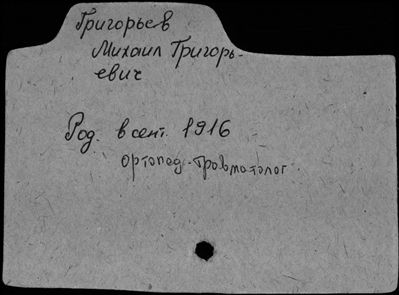 Григорьев
Михаил Григорь-
евич
Род. в сент. 1916
ортопед-травматолог